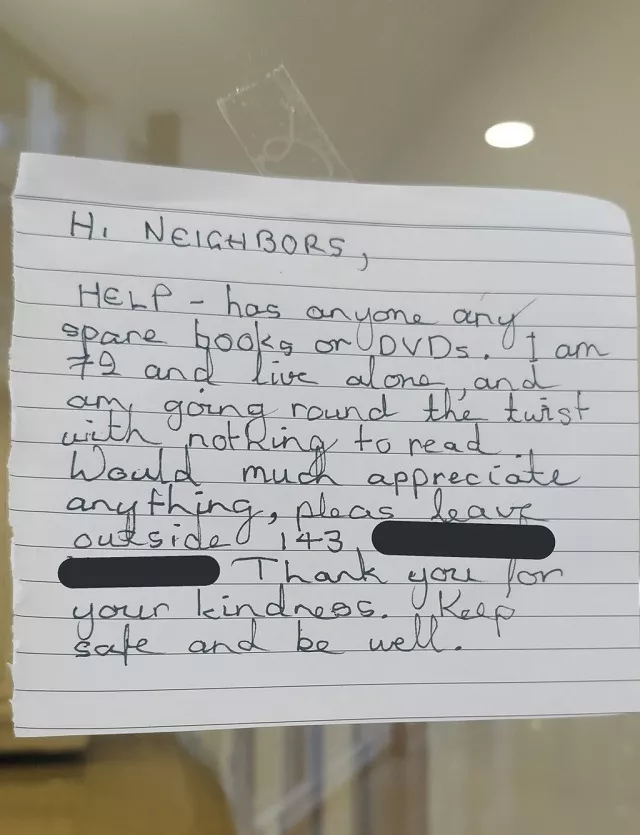 HI NEIGHBORS,
HELP - has anyone any
spare books or DVDs. I am
79 and live alone, and
am going round the twist
with nothing to read.
Would much appreciate
anything, pleas leave
outside 143
Thank you for
your kindness. Keep
safe and be well.